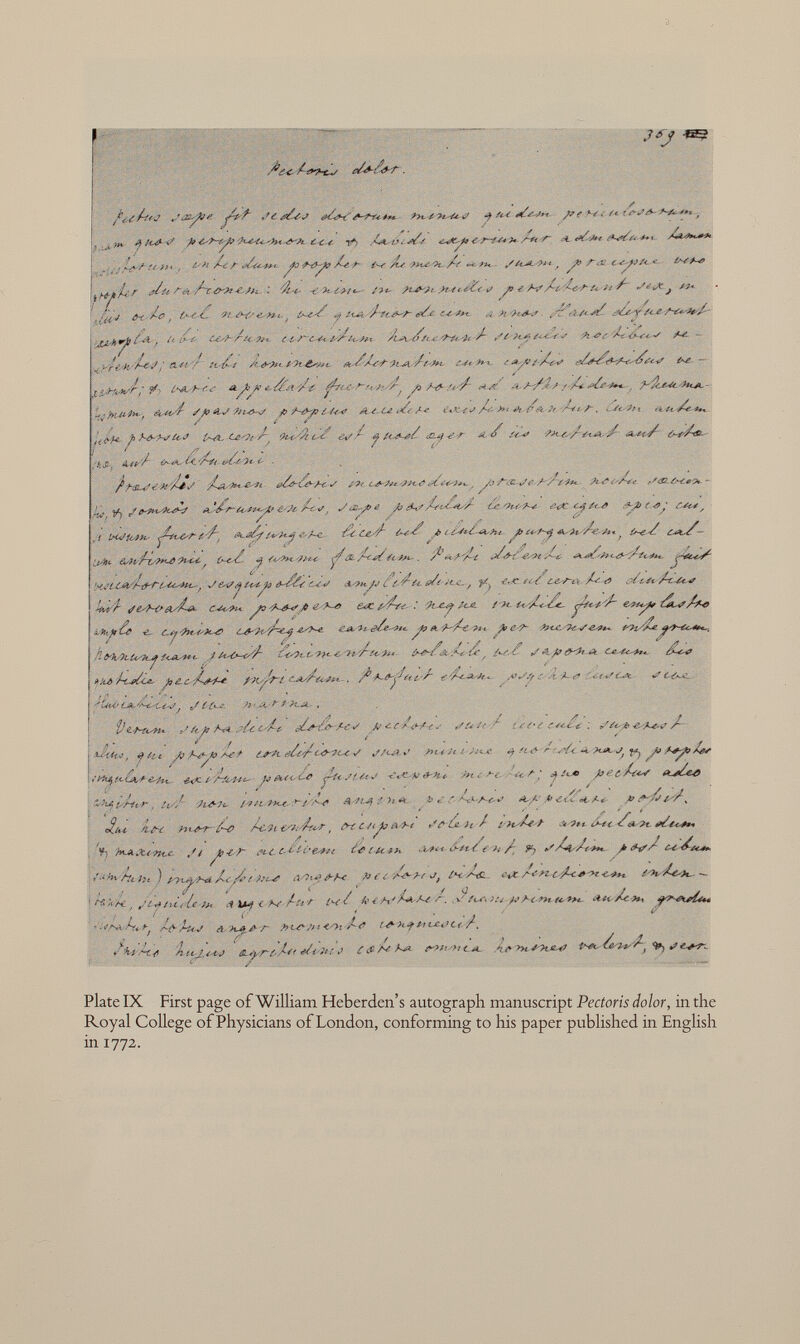 369
Pectoris dolor.
Pectus sæpe fit sedes dolorum minus quidem periculosorum,
quam quos peripneumonici & tabidi experiuntur admodum tamen
interdum propter vehementiam suam, præcipue vero
propter durationem: hi enim in nonnullis perstiterunt sex, in
aliis octo, vel novem, vel quatuordecim annos. Haud defuerunt
exempla, ubi certum circuitum habuerunt singulis noctibus re-
aut ubi hominem alternatim cum capitis doloribus ve-
& varie appellati fuerunt, prout ad arthritidem, rheuma-
tismum, aut spasmos propius accedere existimabantur. Cum autem
prorsus vacent, nihil est quod æger ab iis metuat aut vitæ
aut valetudini.
Præsentis tamen doloris incommodum, præsertim noctu sævien-
tis, & somnos abrumpentis, sæpe postulat leniri exiguo opio; cui,
si visum fuerit, adjungere licet vel pilulam purgantem, vel cal-
cem antimonii, vel gummi fœtidum. Parti dolenti admotum fuit
vesicatorium, sesquipollicis amplitudine, & exulceratio diutius
servata cum prospero exitu: neque inutile fuit emplastro
amplo e cymino contegere eandem partem per mensem integrum.
Nonnunquam juvit linimentum volatile, vel saponaceum bis
quotidie pectore infricatum. Profuit etiam psychrolusia sive
fluviatilis, sive marina.
Verum supradicti dolores pectoris sunt leviculi: superest
alius, qui propter conditiones suas minime quotidianas, & propter
singularem exitum paulo fusius exponi meretur; quo pectus adeo
angitur, ut non immerito angina pectoris appellari possit.
Qui hoc morbo tenentur, occupari solent inter ambulandum
(& maxime si per acclivem locum ambulent, & statim post cibum
sumtum) ingratissimo angore pectoris, vitæ extinctionem inten-
tante, siquidem augeretur vel perstaret. Quamprimum autem gradus
totus angor momento conquiescit.
Initio hujus ægritudinis cætera omnia homines valent, & seor-
Plate IX First page of William Heberden's autograph manuscript Pectoris dolor, in the
Royal College of Physicians of London, conforming to his paper published in English
in 1772.